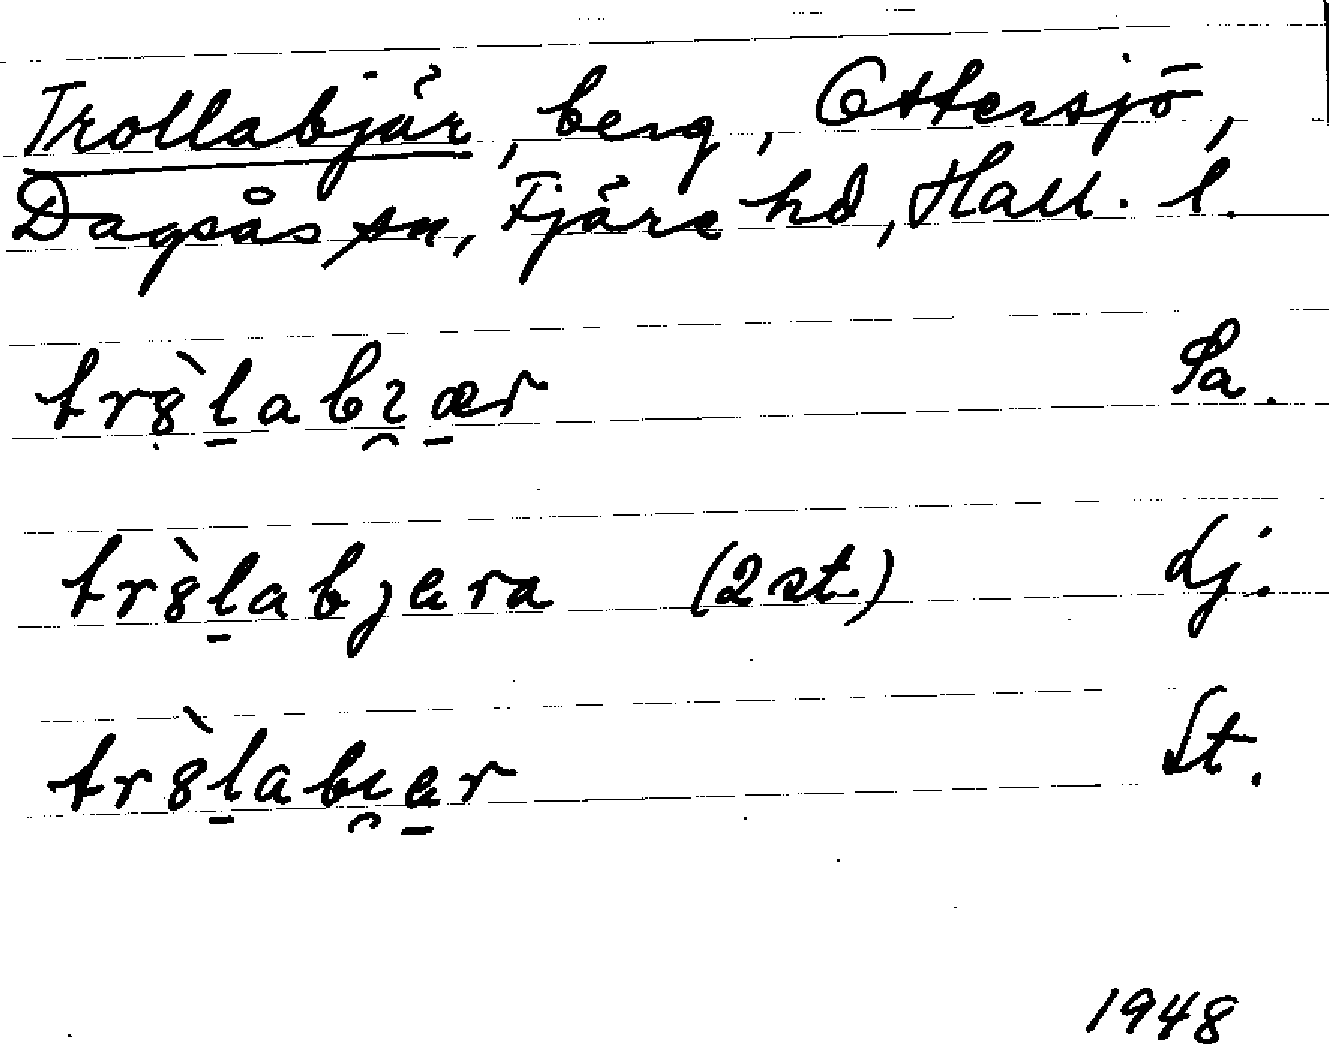 Trollabjär, berg, Ottersjö,
Dagsås sn, Fjäre hd, Hall. l.
tr8̀l̠abɿ̯æ̠r Pa.
tr8̀l̠abjæra (2 st.) Lj.
tr8̀l̠abɩ̯æ̠r St.
1948